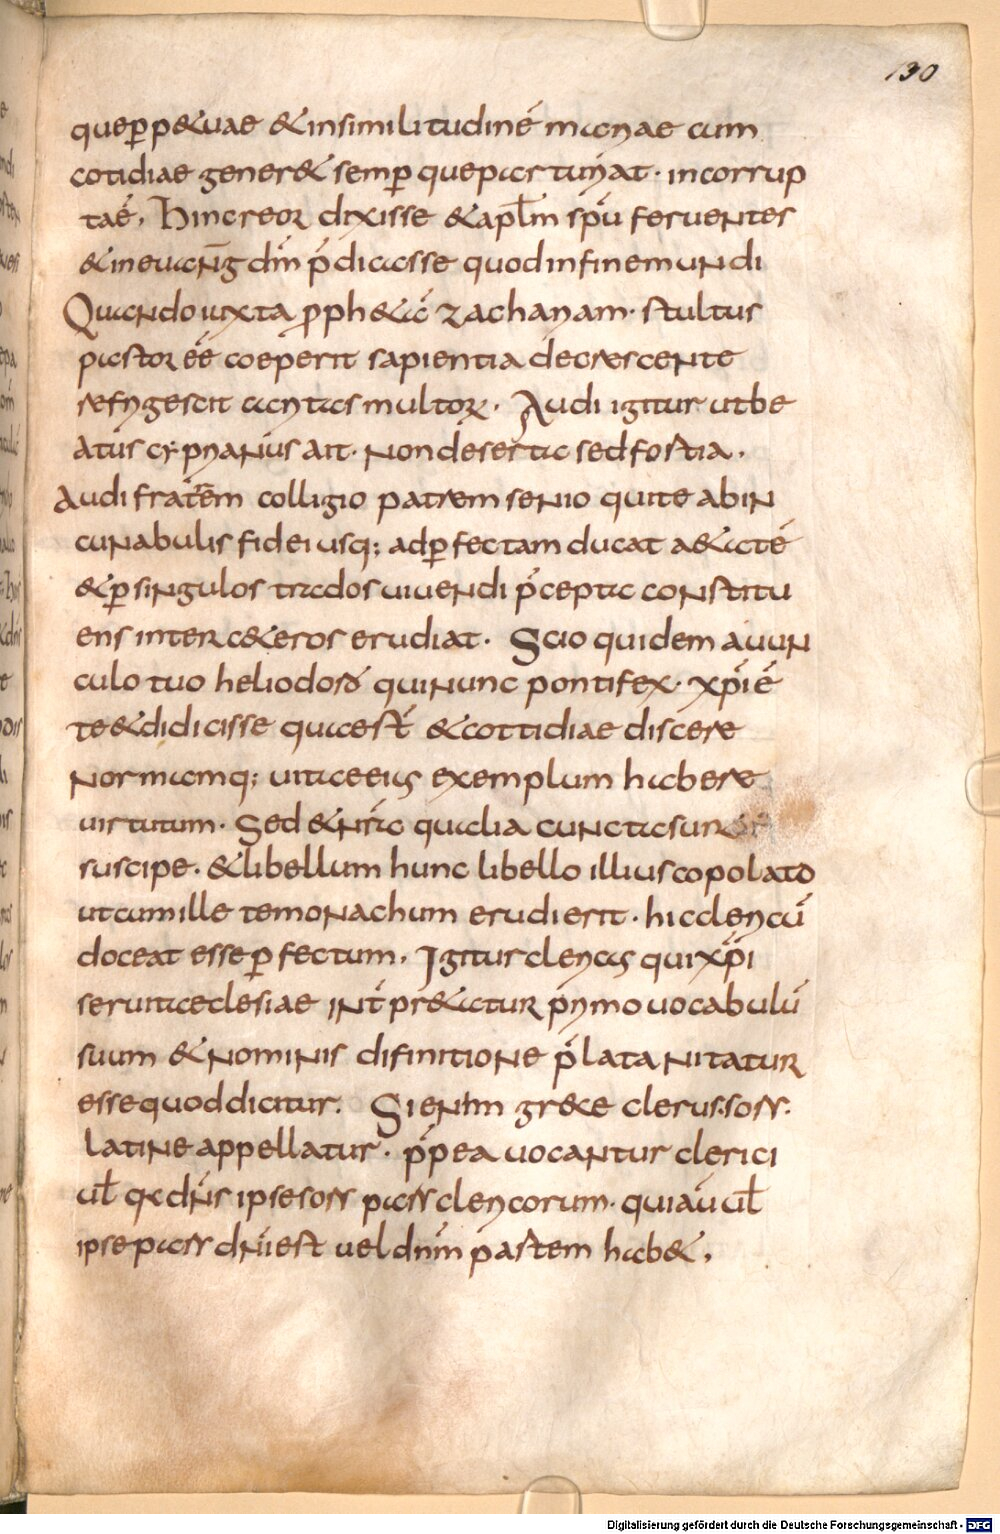 130
queꝑp&uae &insimilitudinē mariae cum
cotidiae gener& semꝑ quepar turiat· incorrup
taē, Hincreor dixisse &aplm̄ spū feruentes
&ineuang dn̄m p̄dicasse quodinfinemundi
Quando iuxta pph&ā zachariam· stultus
pastor eē coeperit sapientia decrescente
refrigescit caritas multoꝝ· Audi igitur utbe
atus cyprianus ait· Nondeserta sedfortia,
Audi fratrēm colligio patrem senio quite abin
cunabulis fidei usq; adꝑfectam ducat a&atē
&ꝑsingulos gradus uiuendi p̄cepta constitu
ens inter c&eros erudiat· Scio quidem auun
culo tuo heliodoro quinunc pontifex· xp̄i ē
te&didicisse quaest̄ &cottidiae discere
Normamq; uitaeeius exemplum habere
uirtutum· Sed &nr̄a qualia cunctasunt
suscipe· &libellum hunc libello illius copolato
utcumille temonachum erudierit· hic clericū
doceat esse ꝑfectum, Igitur clericus quixp̄i
seruitaeclesiae int̄pr&atur primo uocabulū
suum &nominis difinitione p̄lata nitatur
esse quoddicitur. Sienim grece clerus· sors·
Latine appellatur· pp̄ea uocantur clerici
ul̄ qd̄ dn̄s ipse sors pars clericorum· quiaū ul̄
ipse pars dn̄i est uel dn̄m partem hab&,
Digitalisierung gefördert durch die Deutsche Forschungsgemeinschaft - DFG